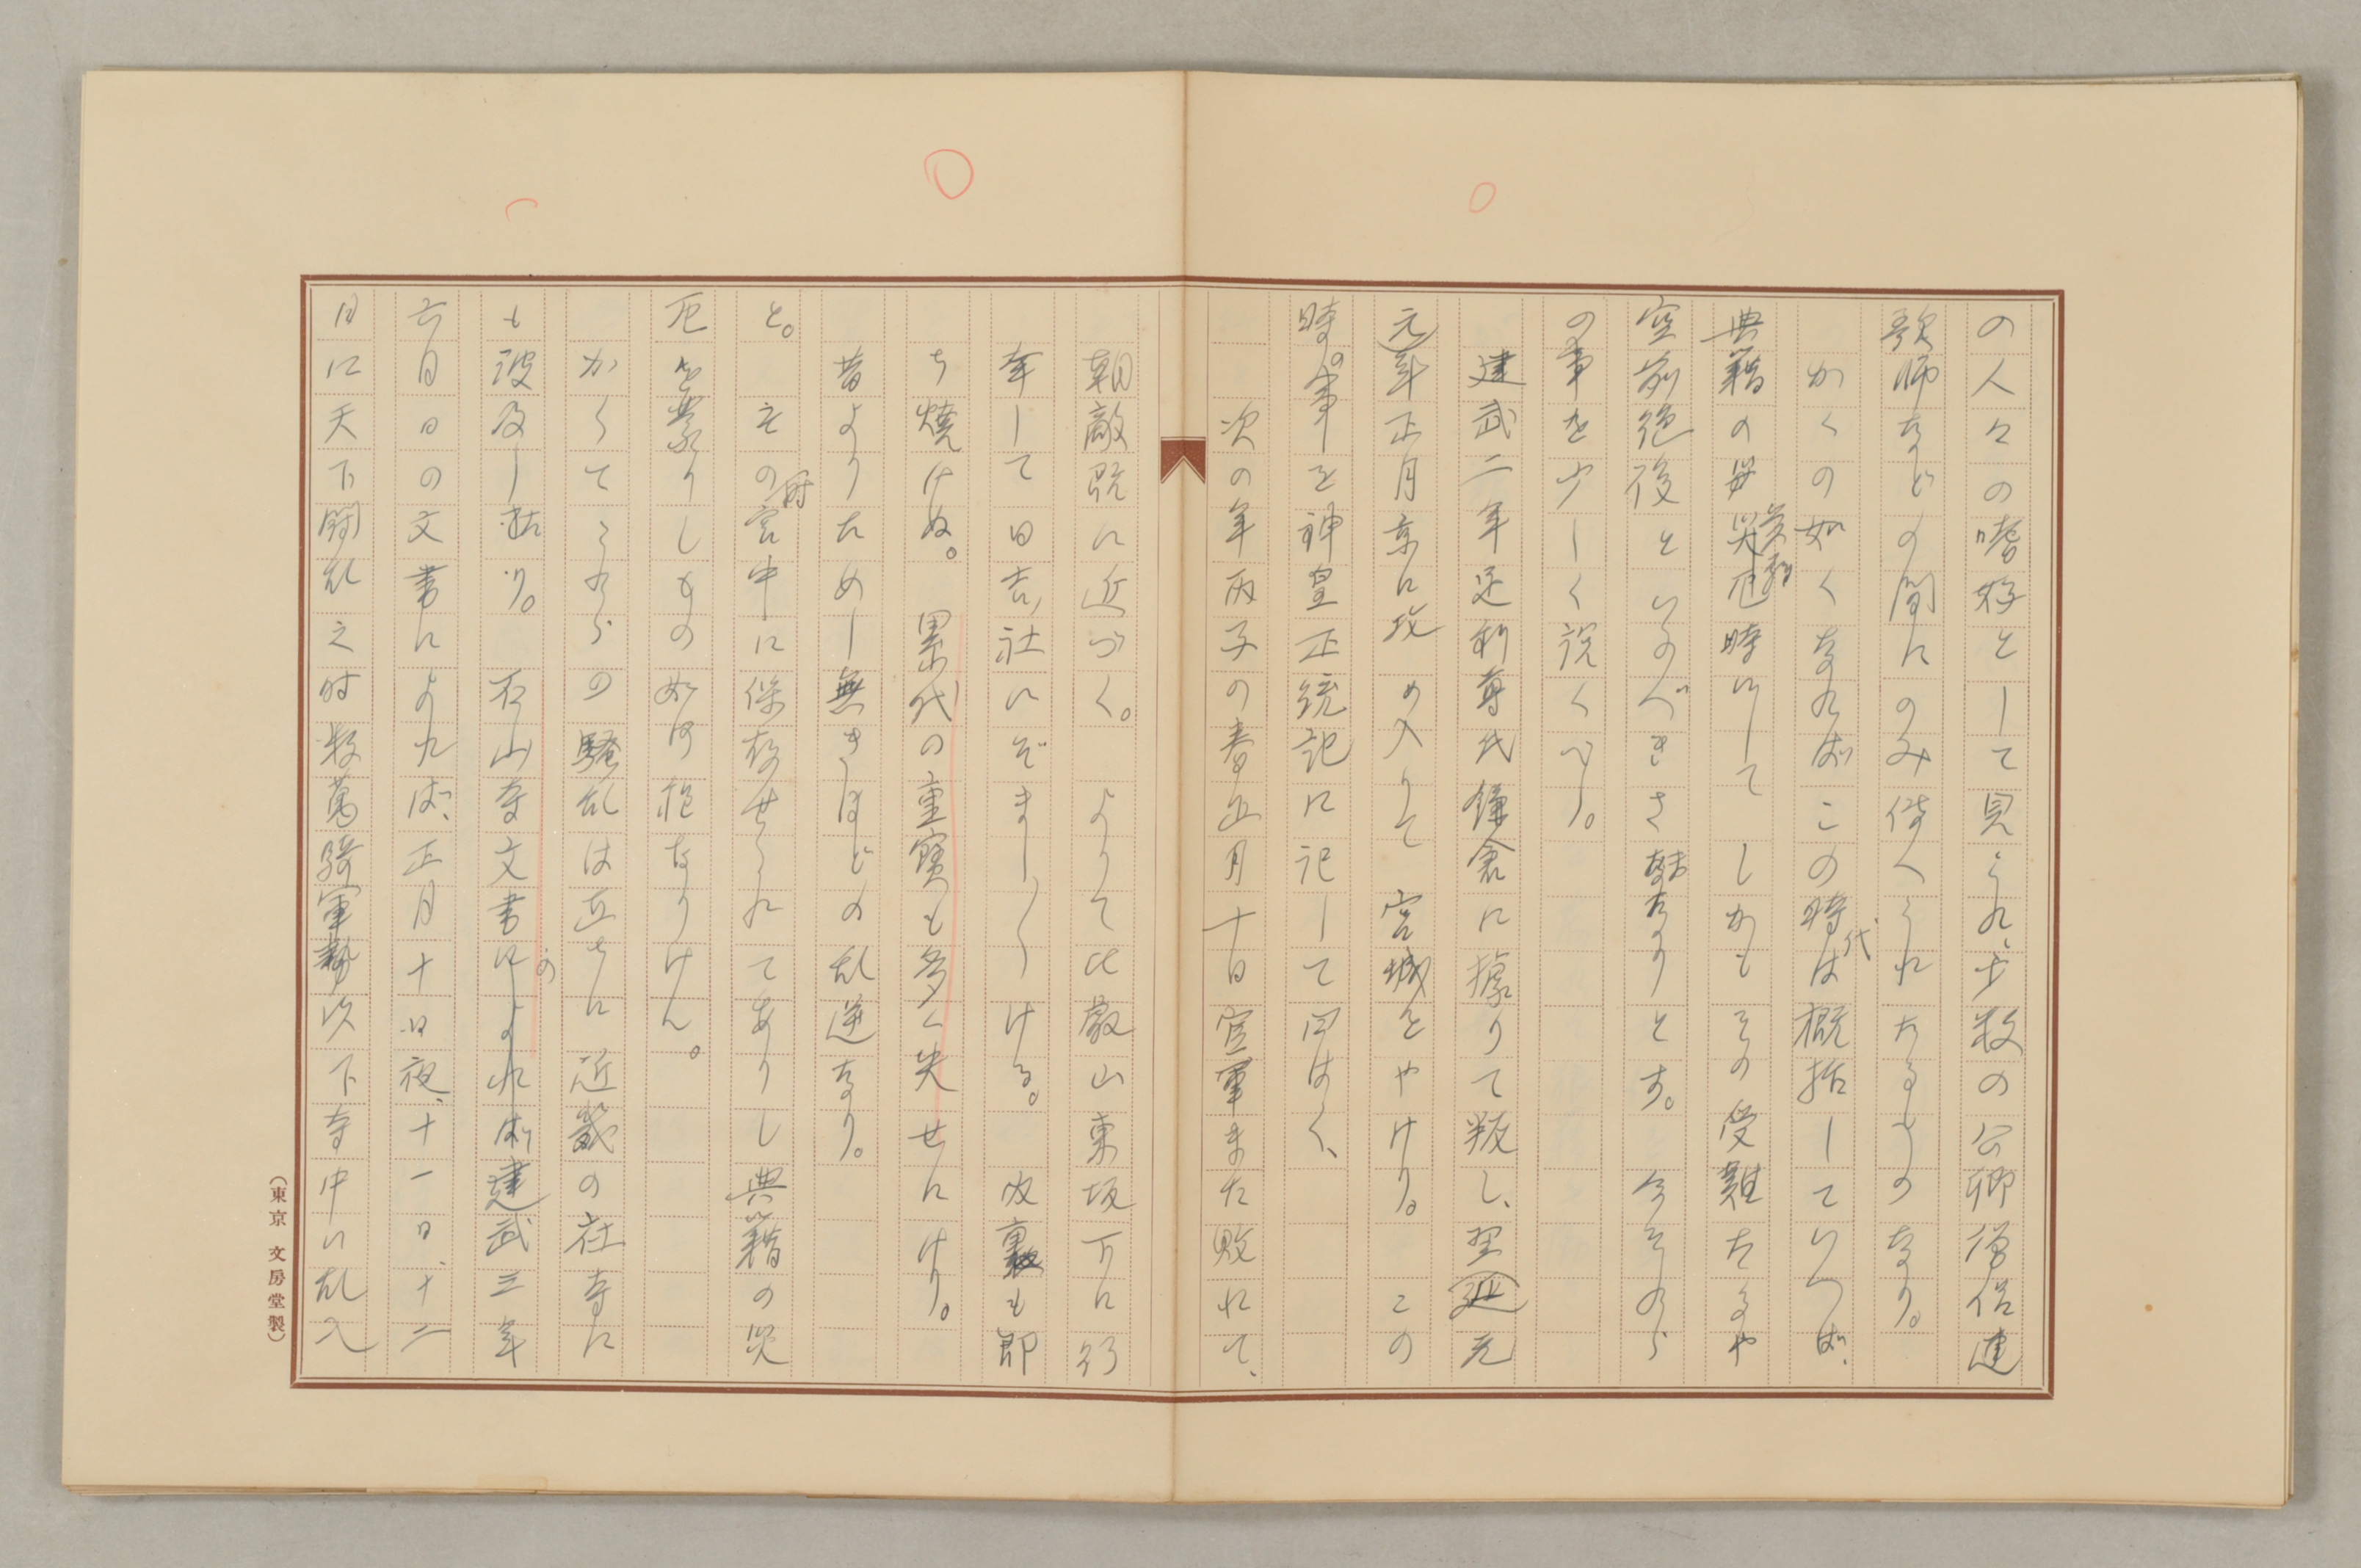 の人々の嗜好として見られ、少数の公卿僧侶連
歌師などの間にのみ伝へられたるものなり。
かくの如くなればこの時代は概括していへば、
典籍の災厄時にして しかもその受難たるや
空前絶後といふべきさまなりとす。 今それら
の事を少しく説くべし。
建武二年足利尊氏鎌倉に據りて叛し、翌延元
元年正月京に攻め入りて 宮城をやけり。 この
時の事を神皇正統記に記して曰はく、
次の年丙子の春正月十日官軍また敗れて、
朝敵既に近づく。 よりて比叡山東坂下に行
幸して日吉社にぞましける。 内裏も即
ち焼けぬ。 累代の重寳も多く失せにけり。
昔よりためし無きほどの乱逆なり。
と。 その時宮中に保存せられてありし典籍の災
厄を蒙りしもの如何程なりけん。
かくてこれらの騒乱は直ちに 近畿の社寺に
も波及し
石山寺文書のによれば建武三年
六日日の文書によれば、正月十日夜、十一日、十二
日に天下闘乱之時数萬騎軍勢以下寺中に乱入
(東京 文房堂製)